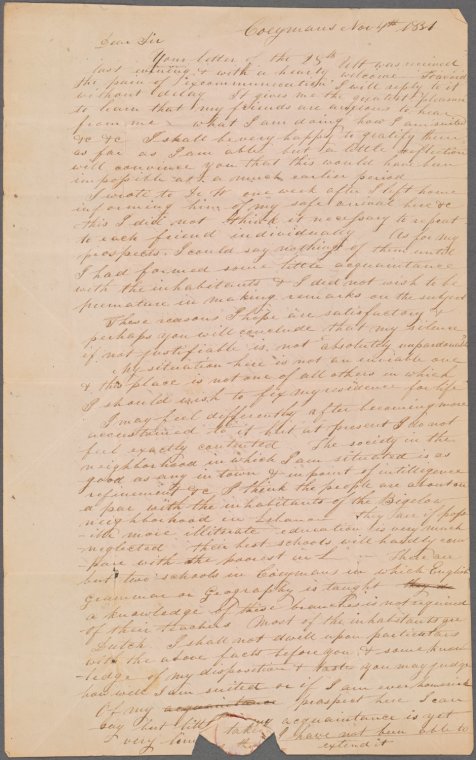 Coeymans Nov 4th 1831
Dear Sir
Your letter of the 28th Oct was received
last evening & with a hearty welcome To avoid
the pain of excommunication I will reply to it
without delay It gives me the greatest pleasure
to learn that my friends are anxious to hear
from me – what I am doing how I am suited
&c &c I shall be very happy to gratify them
as far as I am able but a little reflection
will convince you that this would have been
impossible at a much earlier period
I wrote to one week after I left home
informing him of my safe arrival here &c
this I did not think it necessary to repeat
to each friend individually As for my
prospects I could say nothing of them until
I had formed some little acquaintance
with the inhabitants & I did not wish to be
premature in making remarks on the subject
These reasons I hope are satisfactory &
perhaps you will conclude that my silence
if not justifiable is not absolutely unpardonable
My situation here is not an enviable one
& this place is not one of all others in which
I should wish to fix my residence for life
I may feel differently after becoming more
accustomed to it but at present I do not
feel exactly contented The society in the
neighborhood in which I am situated is as
good as any in town & in point of intelligence
refinement &c I think the people are about on
a par with the inhabitants of the Bigelow
neighborhood in Lebanon They are if poss-
-ible more illiterate education is very much
neglected their best schools will hardly com-
pare with the poorest in L – There are
but two schools in Coeymans in which English
Grammar or Geography is taught
a knowledge of these branches is not required
of their teachers Most of the inhabitants are
Dutch I shall not dwell upon particulars
with the above facts before you & some know-
-ledge of my disposition & taste you may judge
how well I am suited or if I am ever homesick
Of my acquaintance prospect here I can
say but little acquaintance is yet
very I have not been able to
extend it